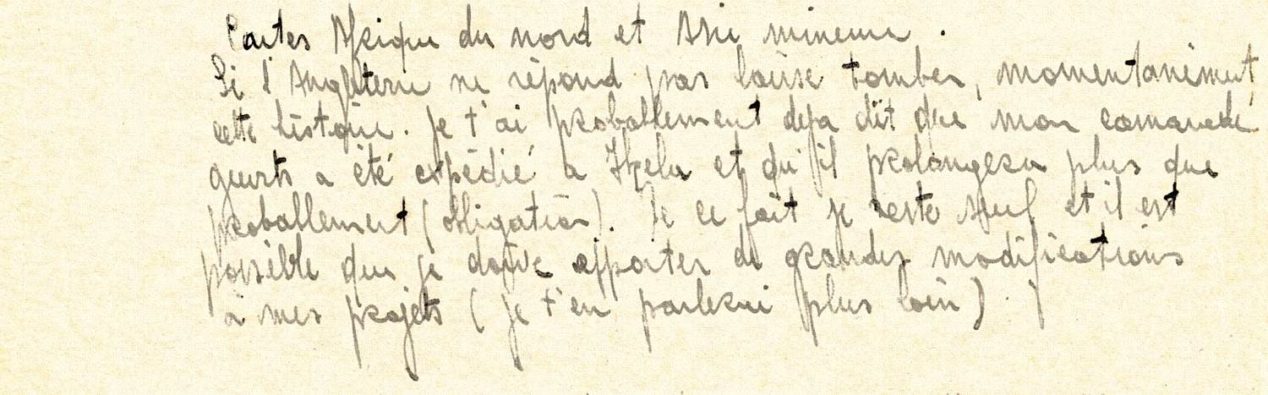 Cartes Afrique du nord et Asie mineure.
Si l'Angleterre ne répond pas laisse tomber, momentanément,
cette histoire. Je t'ai probablement déja dit que mon camarade
a été expédié a Ikela et qu'il prolongera plus que
probablement (obligation). De ce fait je reste seul et il est
possible que je doive apporter de grandes modifications
à mes projets (je t'en parlerai plus loin).